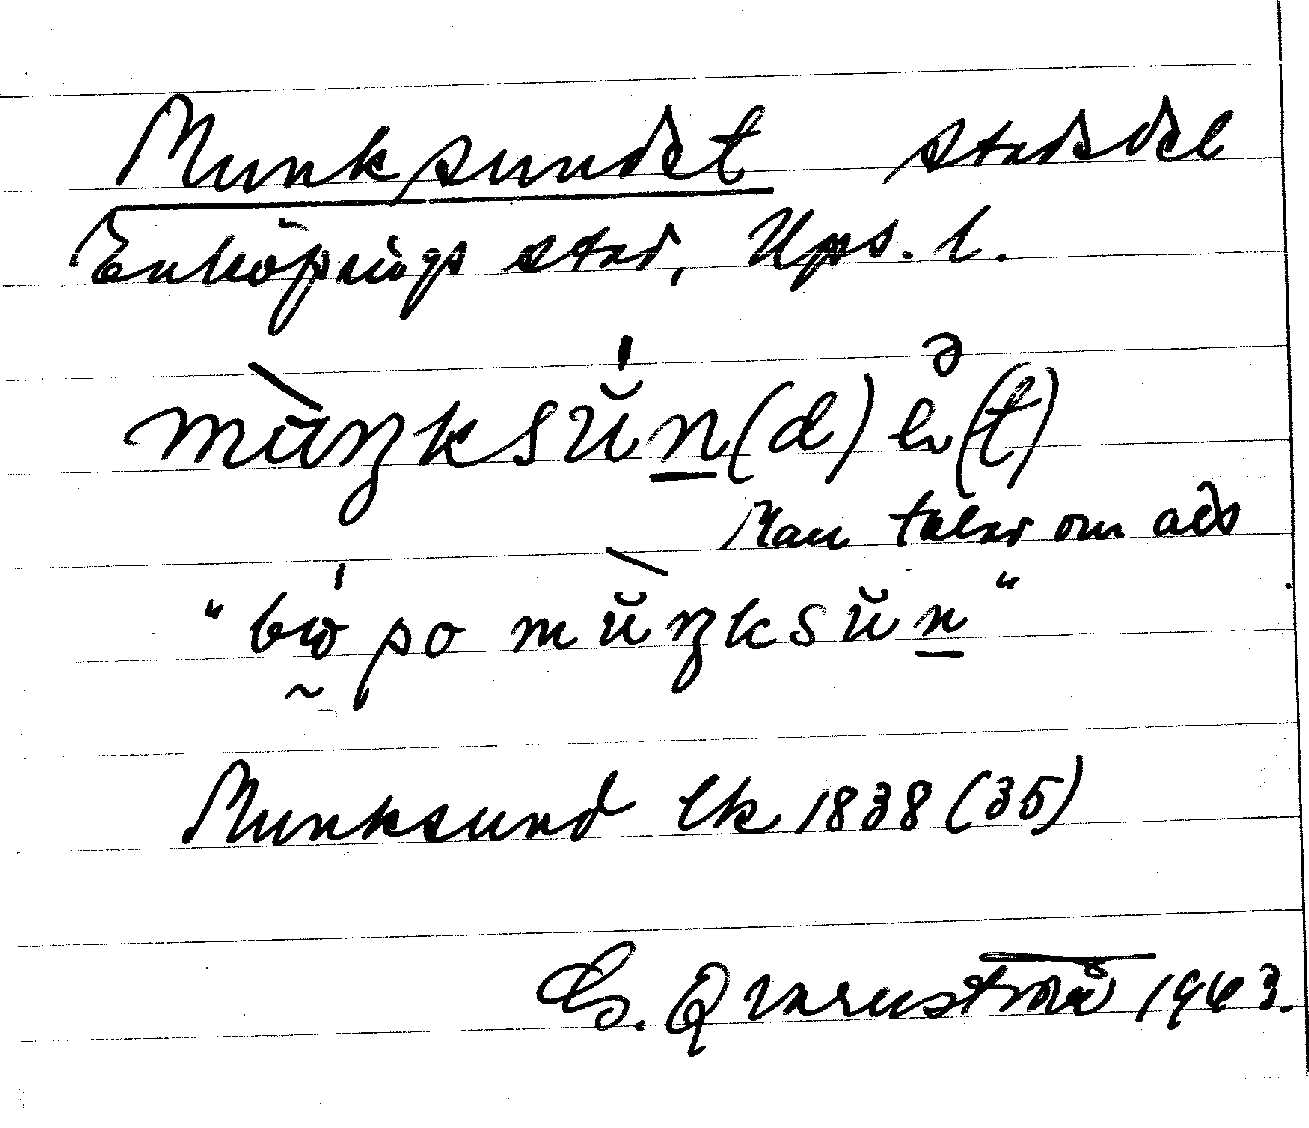 Munksundet stadsdel
Enköpings stad, Ups. l.
mùŋksŭ́n(d)ə(t)
Man talar om att
"bω po mŭ̀ŋksŭn"
Munksund lk 1838 (35)
G. Qvarnström 1963.